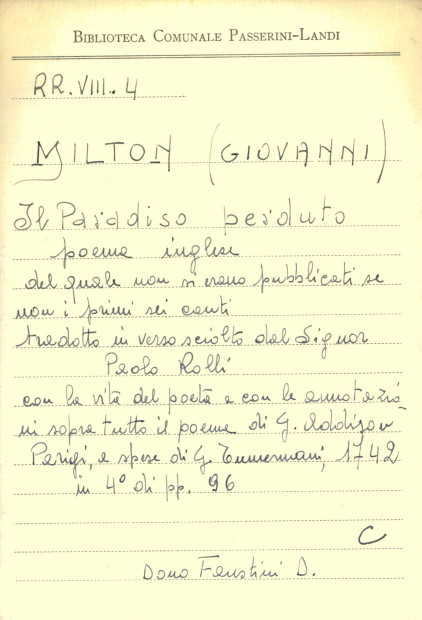 BIBLIOTECA COMUNALE PASSERINI-LANDI
RR.VIII.4
MILTON (GIOVANNI)
Il Paradiso perduto
poema inglese
del quale non si erano pubblicati se
non i primi sei canti
tradotto in verso sciolto dal Signor
Paolo Rolli
con la vita del poeta e con le annotazio
ni sopra tutto il poema di G. Addison
Parigi, a spese di G. Tumermani, 1742
in 4° di pp. 96
C
Dono Faustini D.